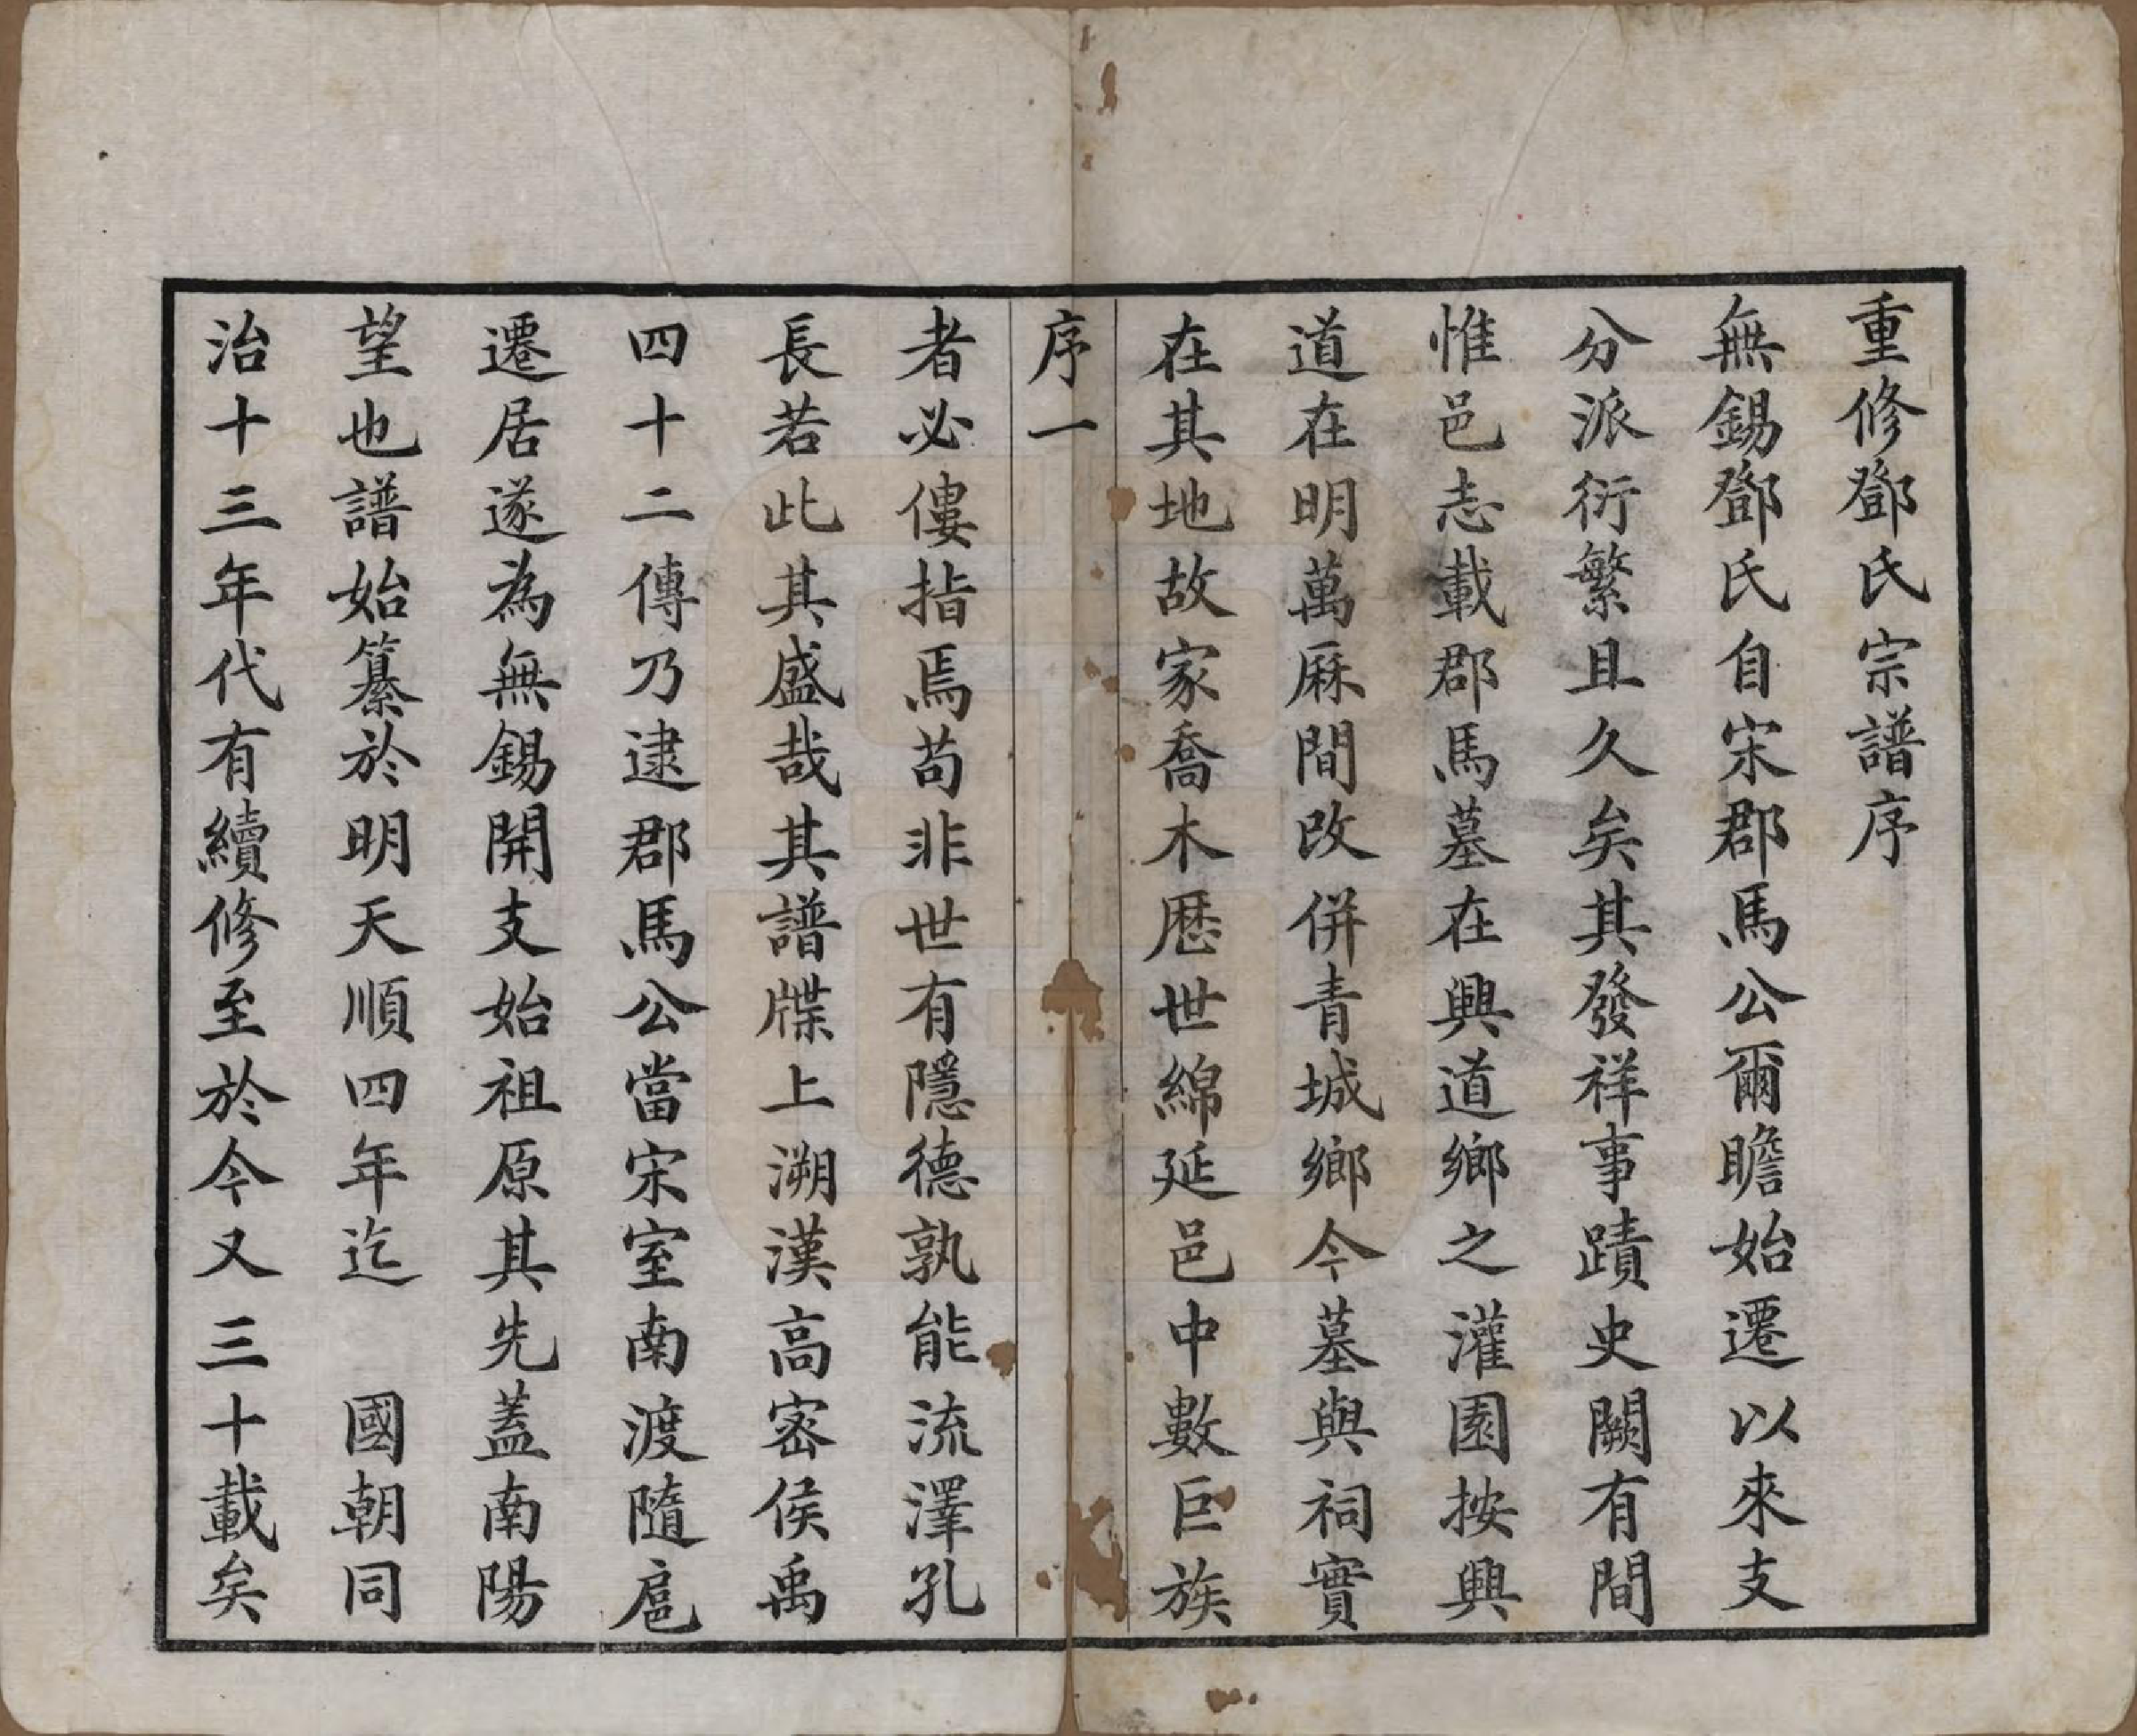 重修鄧氏宗譜序
無錫鄧氏自宋郡馬公爾瞻始遷以來支
分派衍繁且久矣其發祥事蹟史闕有間
惟邑志載郡馬墓在興道鄉之灌園按興
道在明萬厤間改併青城鄉今墓與祠實
在其地故家喬木歷世綿延邑中數巨族
序一
者必僂指焉苟非世有隱德孰能流澤孔
長若此其盛哉其譜牒上溯漢高密侯禹
四十二傳乃逮郡馬公當宋室南渡隨扈
遷居遂為無錫開支始祖原其先蓋南陽
望也譜始纂於明天順四年迄　國朝同
治十三年代有續修至於今又三十載矣